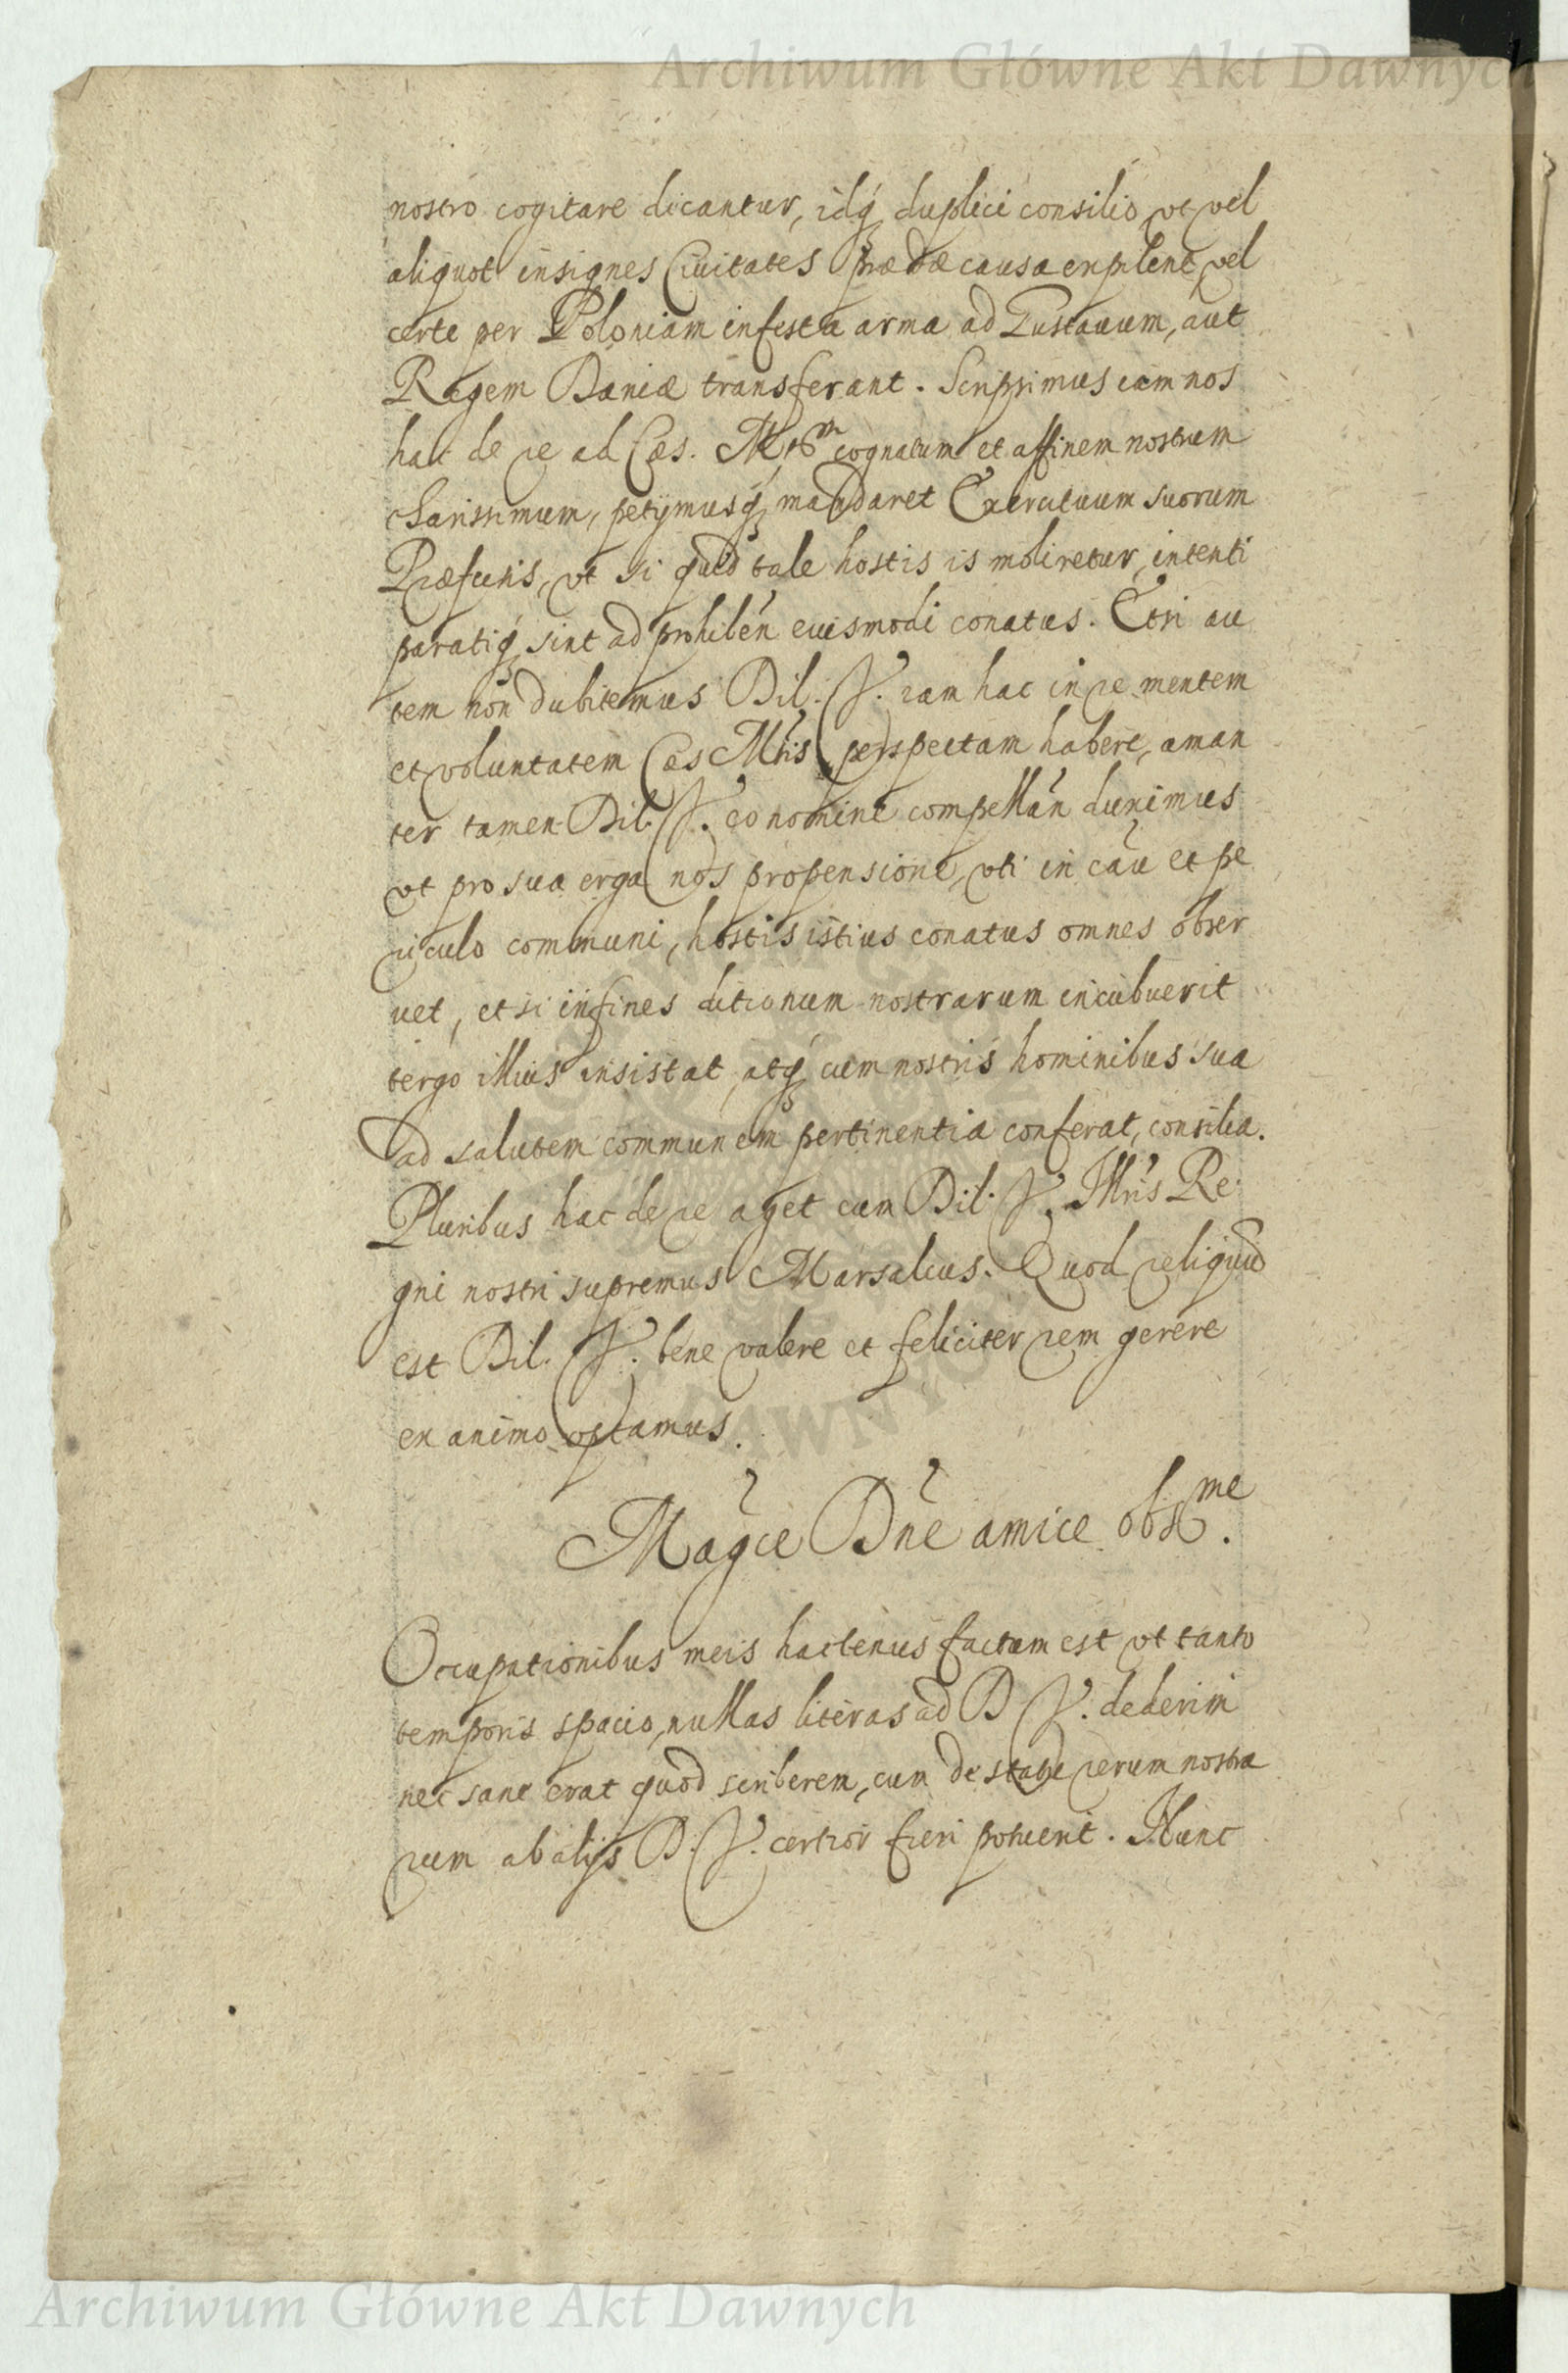 Archiwum Główne Akt Dawnych
nostro cogitare dicantur, idq́ꝫ duplici consilio, vt vel
aliquot insignes Ciuitates prædæ causa expilent, vel
certe per Poloniam infesta arma ad Gustauum, aut
Regem Daniæ transferant. Scripsimus iam nos
hac de re ad Cæs. Mtem cognatum et affinem nostrum
Charissimum, petijmusq́ꝫ, mandaret Exercituum suorum
Præfectis, vt si quid tale hostis is moliretur, intenti
paratiq́ꝫ sint ad prohibeñ euismodi conatus. Etsi au
tem non dubitemus Dil. V. iam hac in re mentem
et voluntatem Cæs Mtis perspectam habere, aman
ter tamen Dil. V. eo nomine compellañ duximus
vt pro sua erga nos propensione, vti in caũ et pe
riculo communi, hostis istius conatus omnes obser
uet, et si in fines ditionum nostrarum incubuerit
tergo illius insistat, atq́ꝫ cum nostris hominibus sua
ad salutem communem pertinentia conferat, consilia.
Pluribus hac de re aget cum Dil. V. Illris Re
gni nostri supremus Marsalcus. Quod reliquũ
est Dil. V. bene valere et feliciter rem gerere
ex animo optamus.
Magce Dne amice obsme.
Occupationibus meis hactenus factum est vt tanto
temporis spacio, nullas literas ad D V. dederim
nec sane erat quod scriberem, cum de statu rerum nostra
rum ab alijs D. V. certior fieri potuerit. Nunc
Archiwum Główne Akt Dawnych